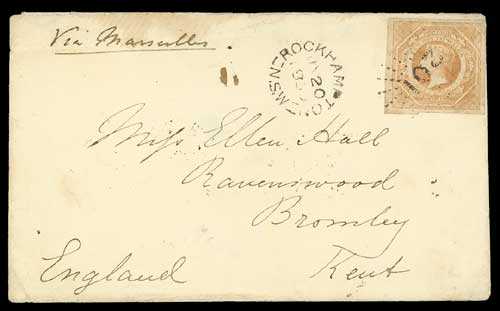 Via Marseilles.
ROCKHAMPTON
N.S.W
20
Miss Ellen Hall
Ravenswood
Bromley
England Kent